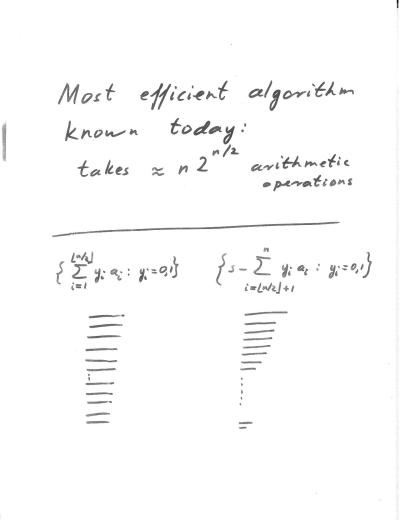 Most efficient algorithm
known today:
takes ≈ n 2^{n/2} arithmetic
operations
{ ∑_{i=1}^{⌊n/2⌋} y_i a_i : y_i = 0,1 } { s - ∑_{i=⌊n/2⌋+1}^{n} y_i a_i : y_i = 0,1 }